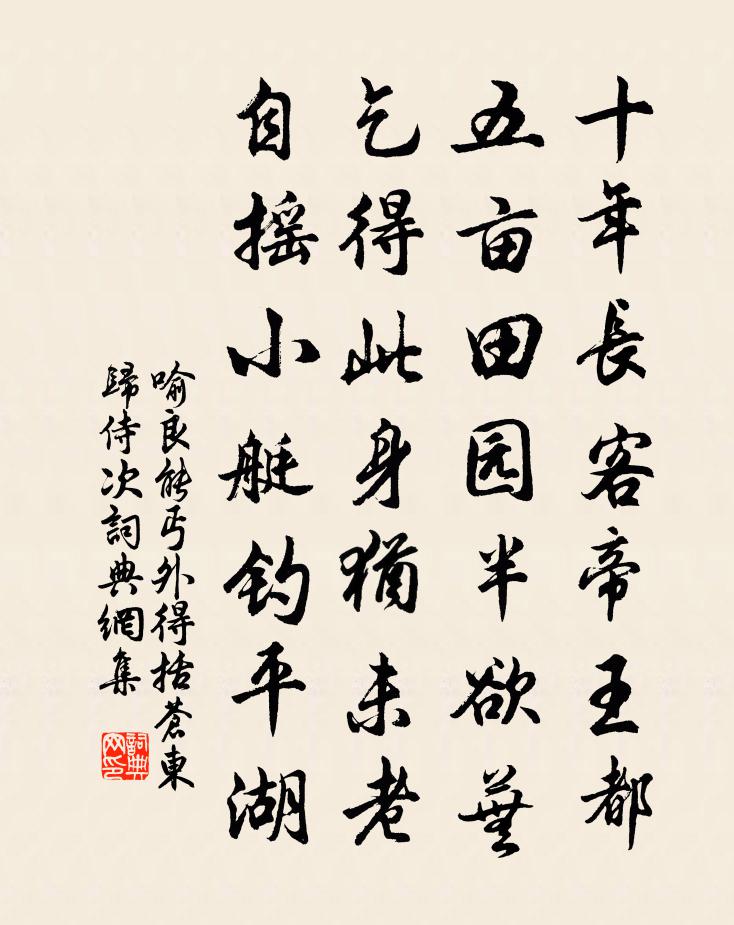 十年長客帝王都
五亩田园半欲蕪
乞得此身猶未老
自摇小艇钓平湖
喻良能丐外得括蒼東
歸侍次詞典網集
詞典网印